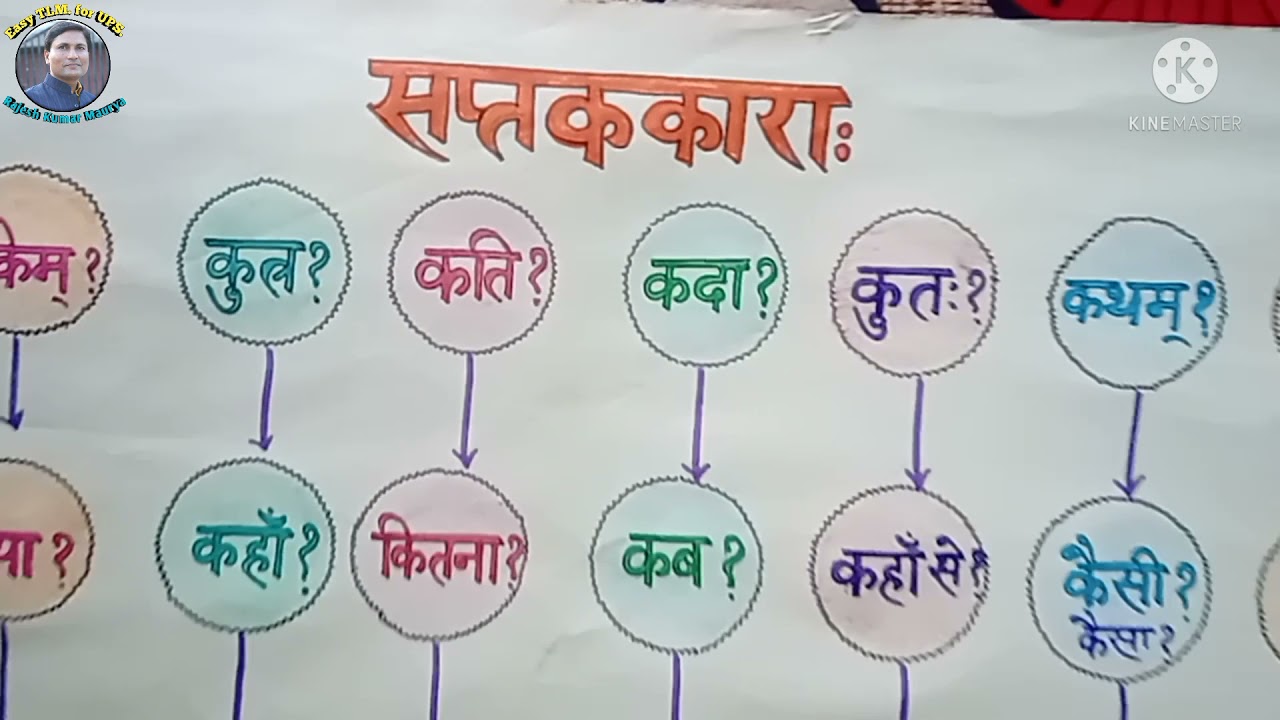 Easy TLM. for UPS.
Rajesh Kumar Maurya
KINEMASTER
सप्तककाराः
किम् ? कुत्र ? कति ? कदा ? कुतः ? कथम् ?
या ? कहाँ ? कितना ? कब ? कहाँ से ? कैसी ?
कैसा ?